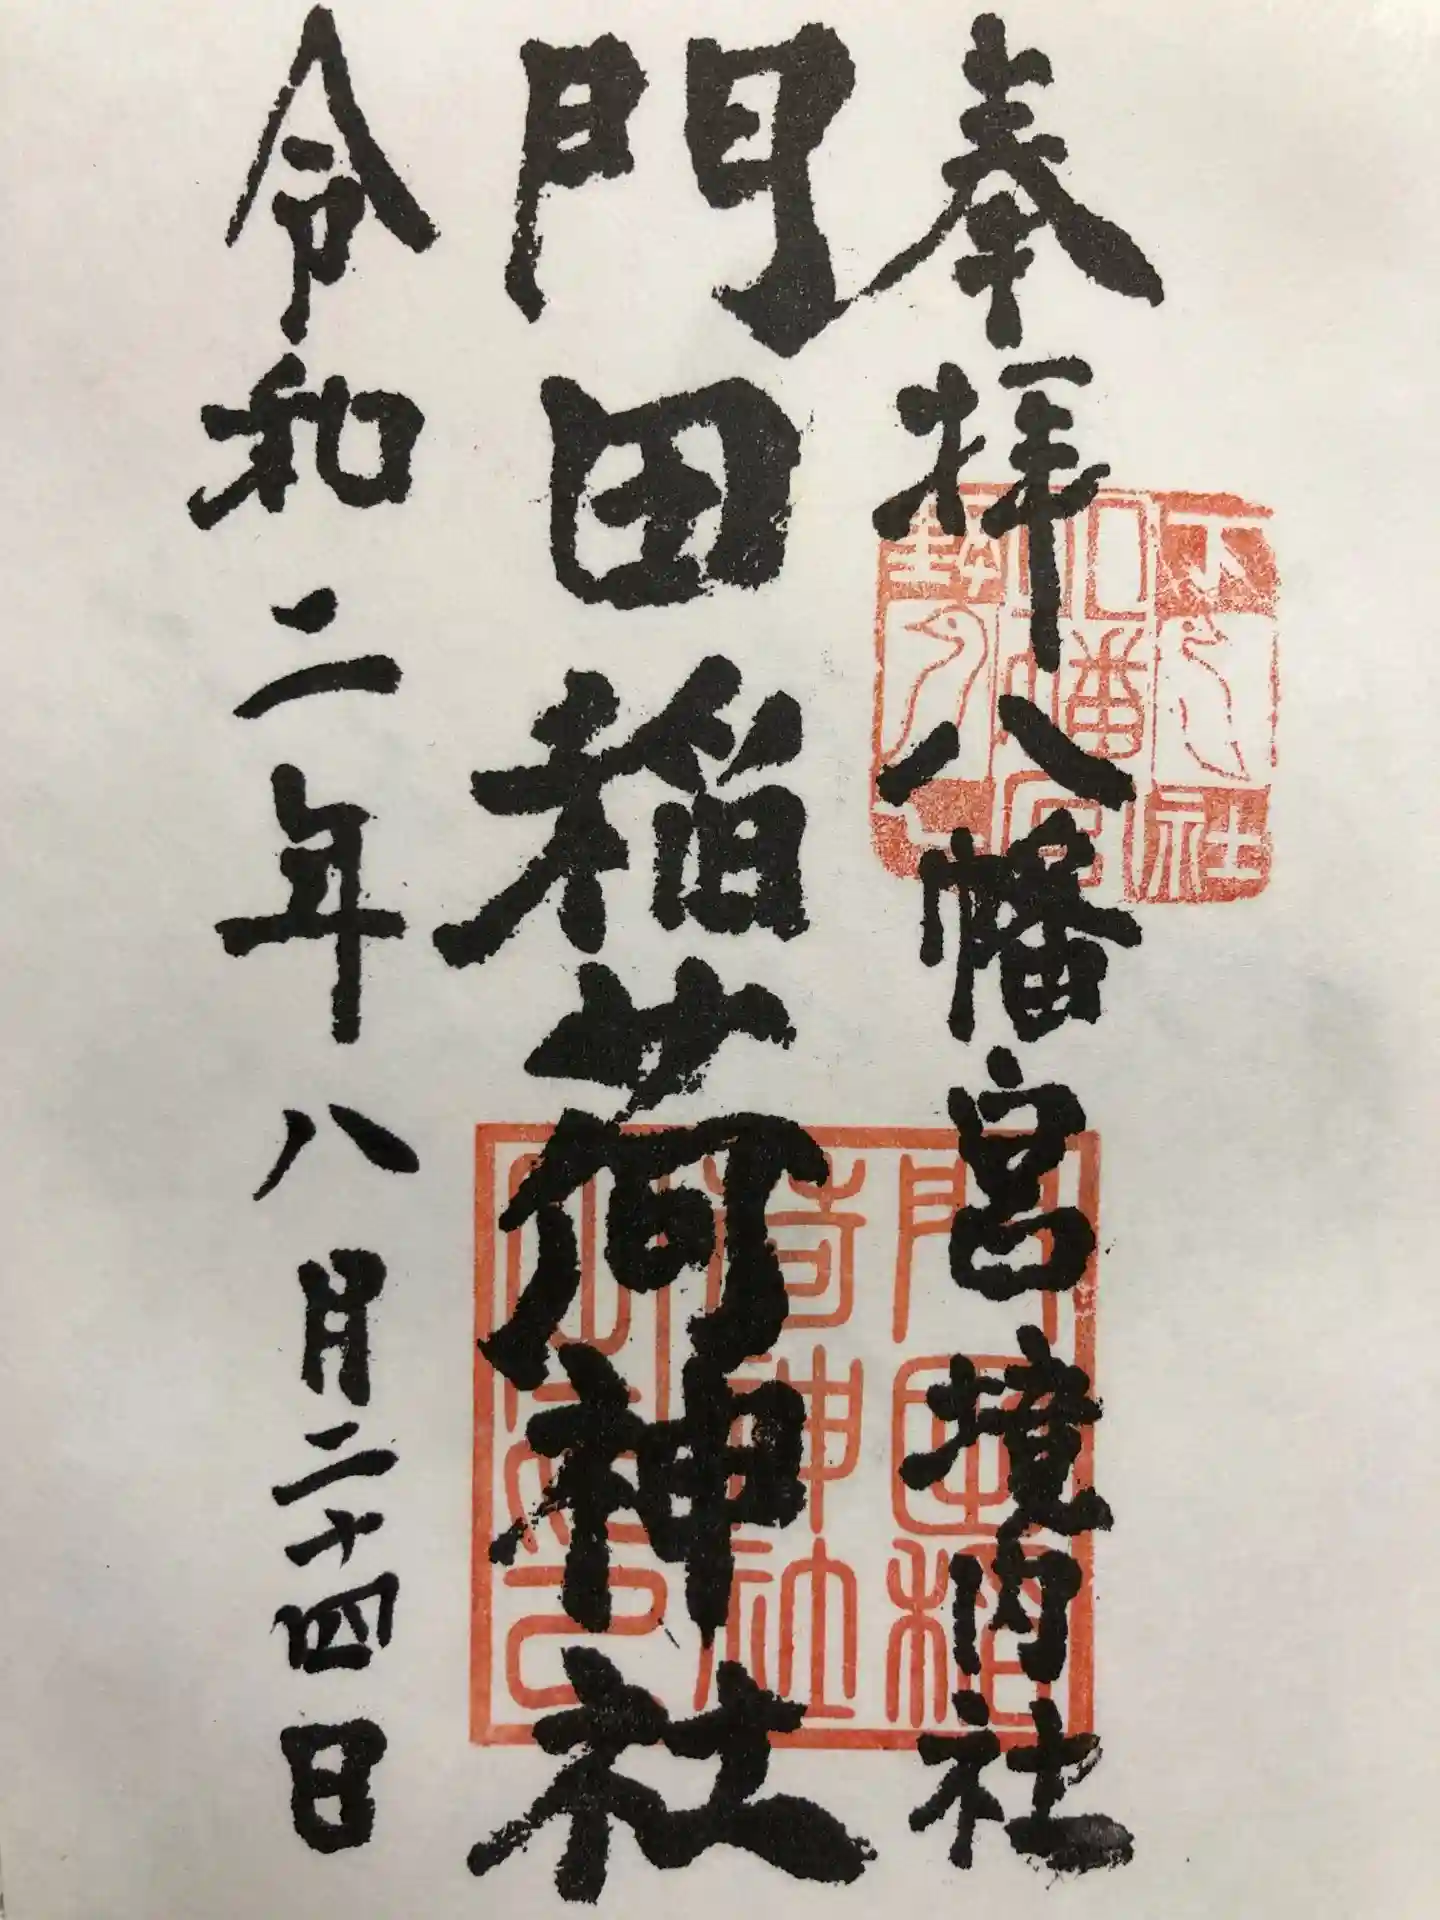 奉拝 八幡宮境内社
門田稲荷神社
令和二年八月二十四日
下
社
八幡宮
門田稲
荷神社